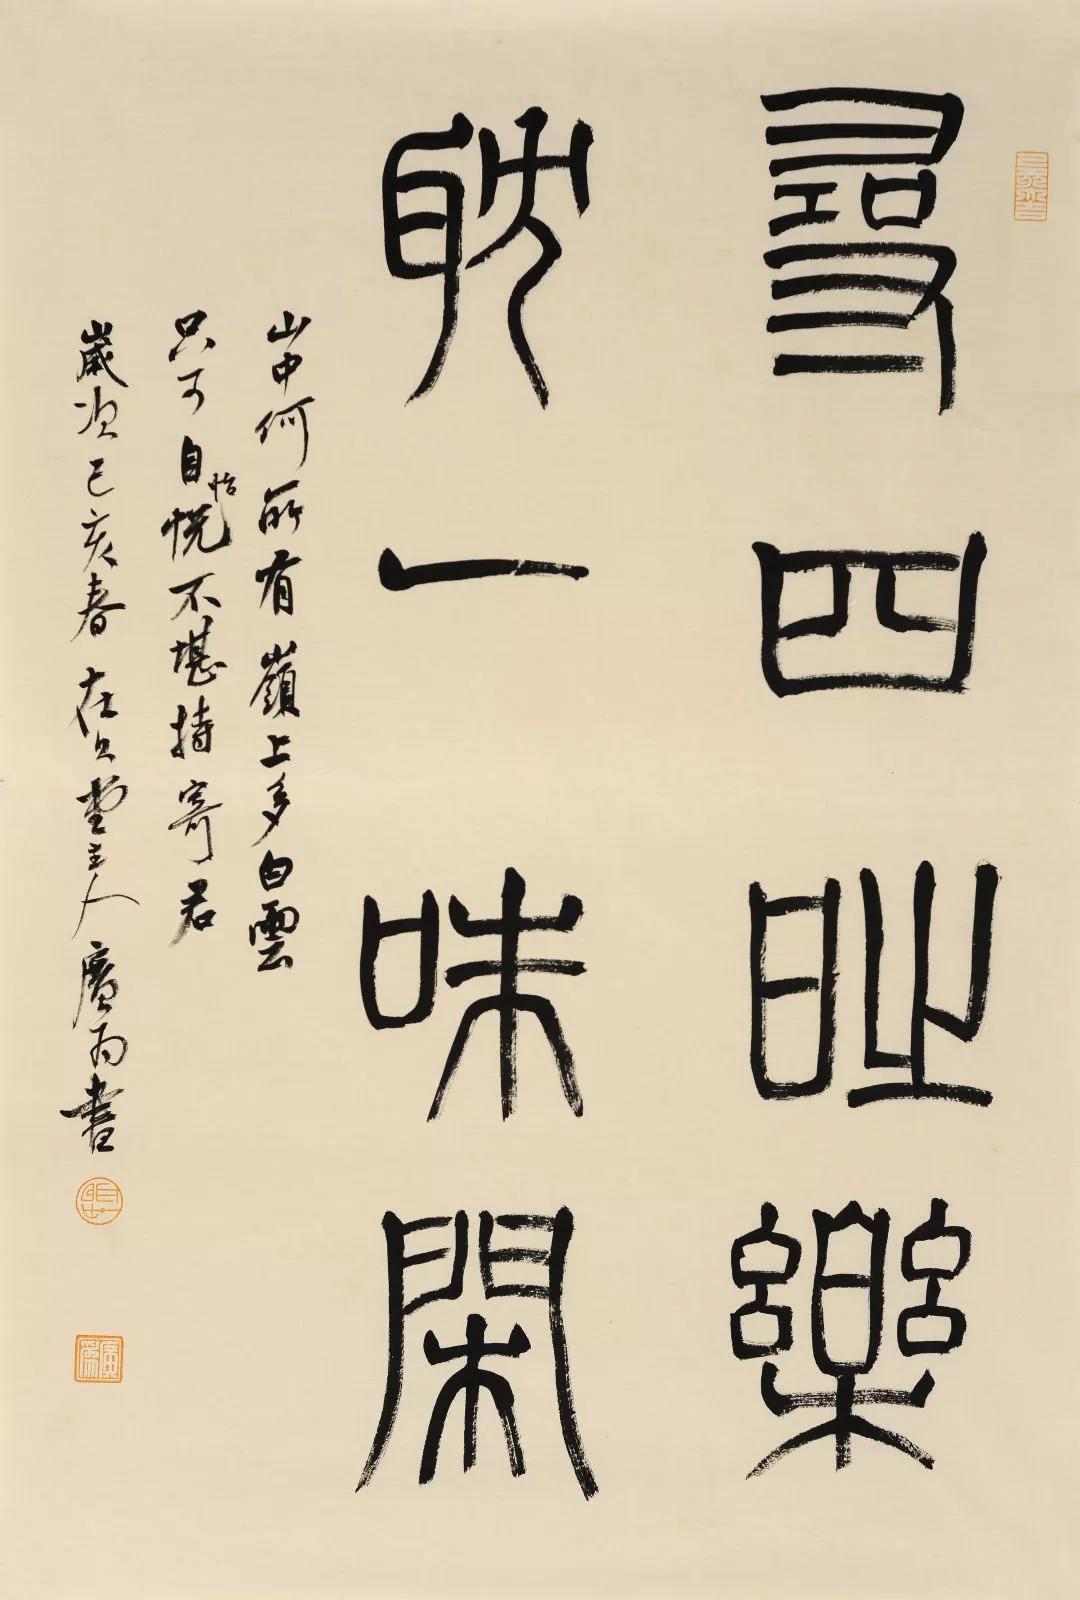 尋四時樂
耽一味閑
山中何所有嶺上多白雲
只可自怡悅不堪持寄君
歲次己亥春在堂主人廣為書